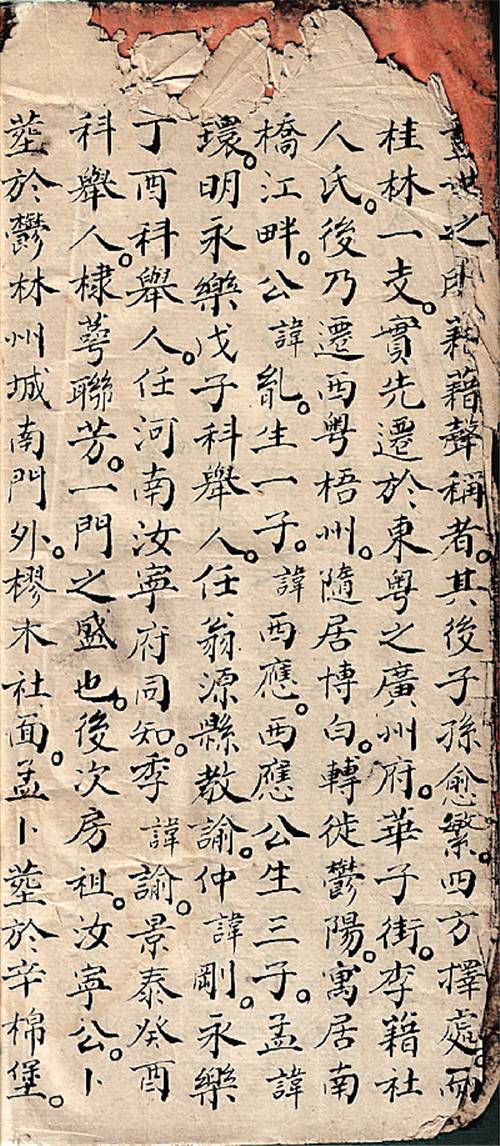 世之藉藉聲稱者。其後子孫愈繁。四方擇處。而
桂林一支。實先遷於東粤之廣州府。華子街。李籍社
人氏。後乃遷西粤梧州。隨居博白。轉徙鬱陽。寓居南
橋江畔。公諱亂。生一子。諱西應。西應公生三子。孟諱
環。明永樂戊子科舉人。任翁源縣教諭。仲諱剛。永樂
丁酉科舉人。任河南汝寧府同知。季諱諭。景泰癸酉
科舉人。棣萼聯芳。一門之盛也。後次房祖。汝寧公。卜
塟於鬱林州城南門外。樛木社面。孟卜塟於辛棉堡。